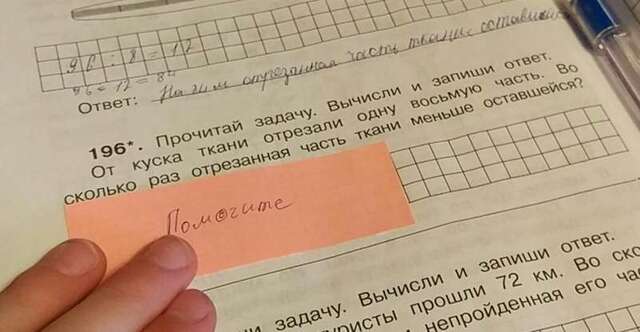 96 : 8 = 12
96 - 12 = 84
Ответ: отрезанная часть ткани
196*. Прочитай задачу. Вычисли и запиши ответ.
От куска ткани отрезали одну восьмую часть. Во
сколько раз отрезанная часть ткани меньше оставшейся?
Помогите
задачу. Вычисли и запиши ответ.
прошли 72 км. Во
непройденная его